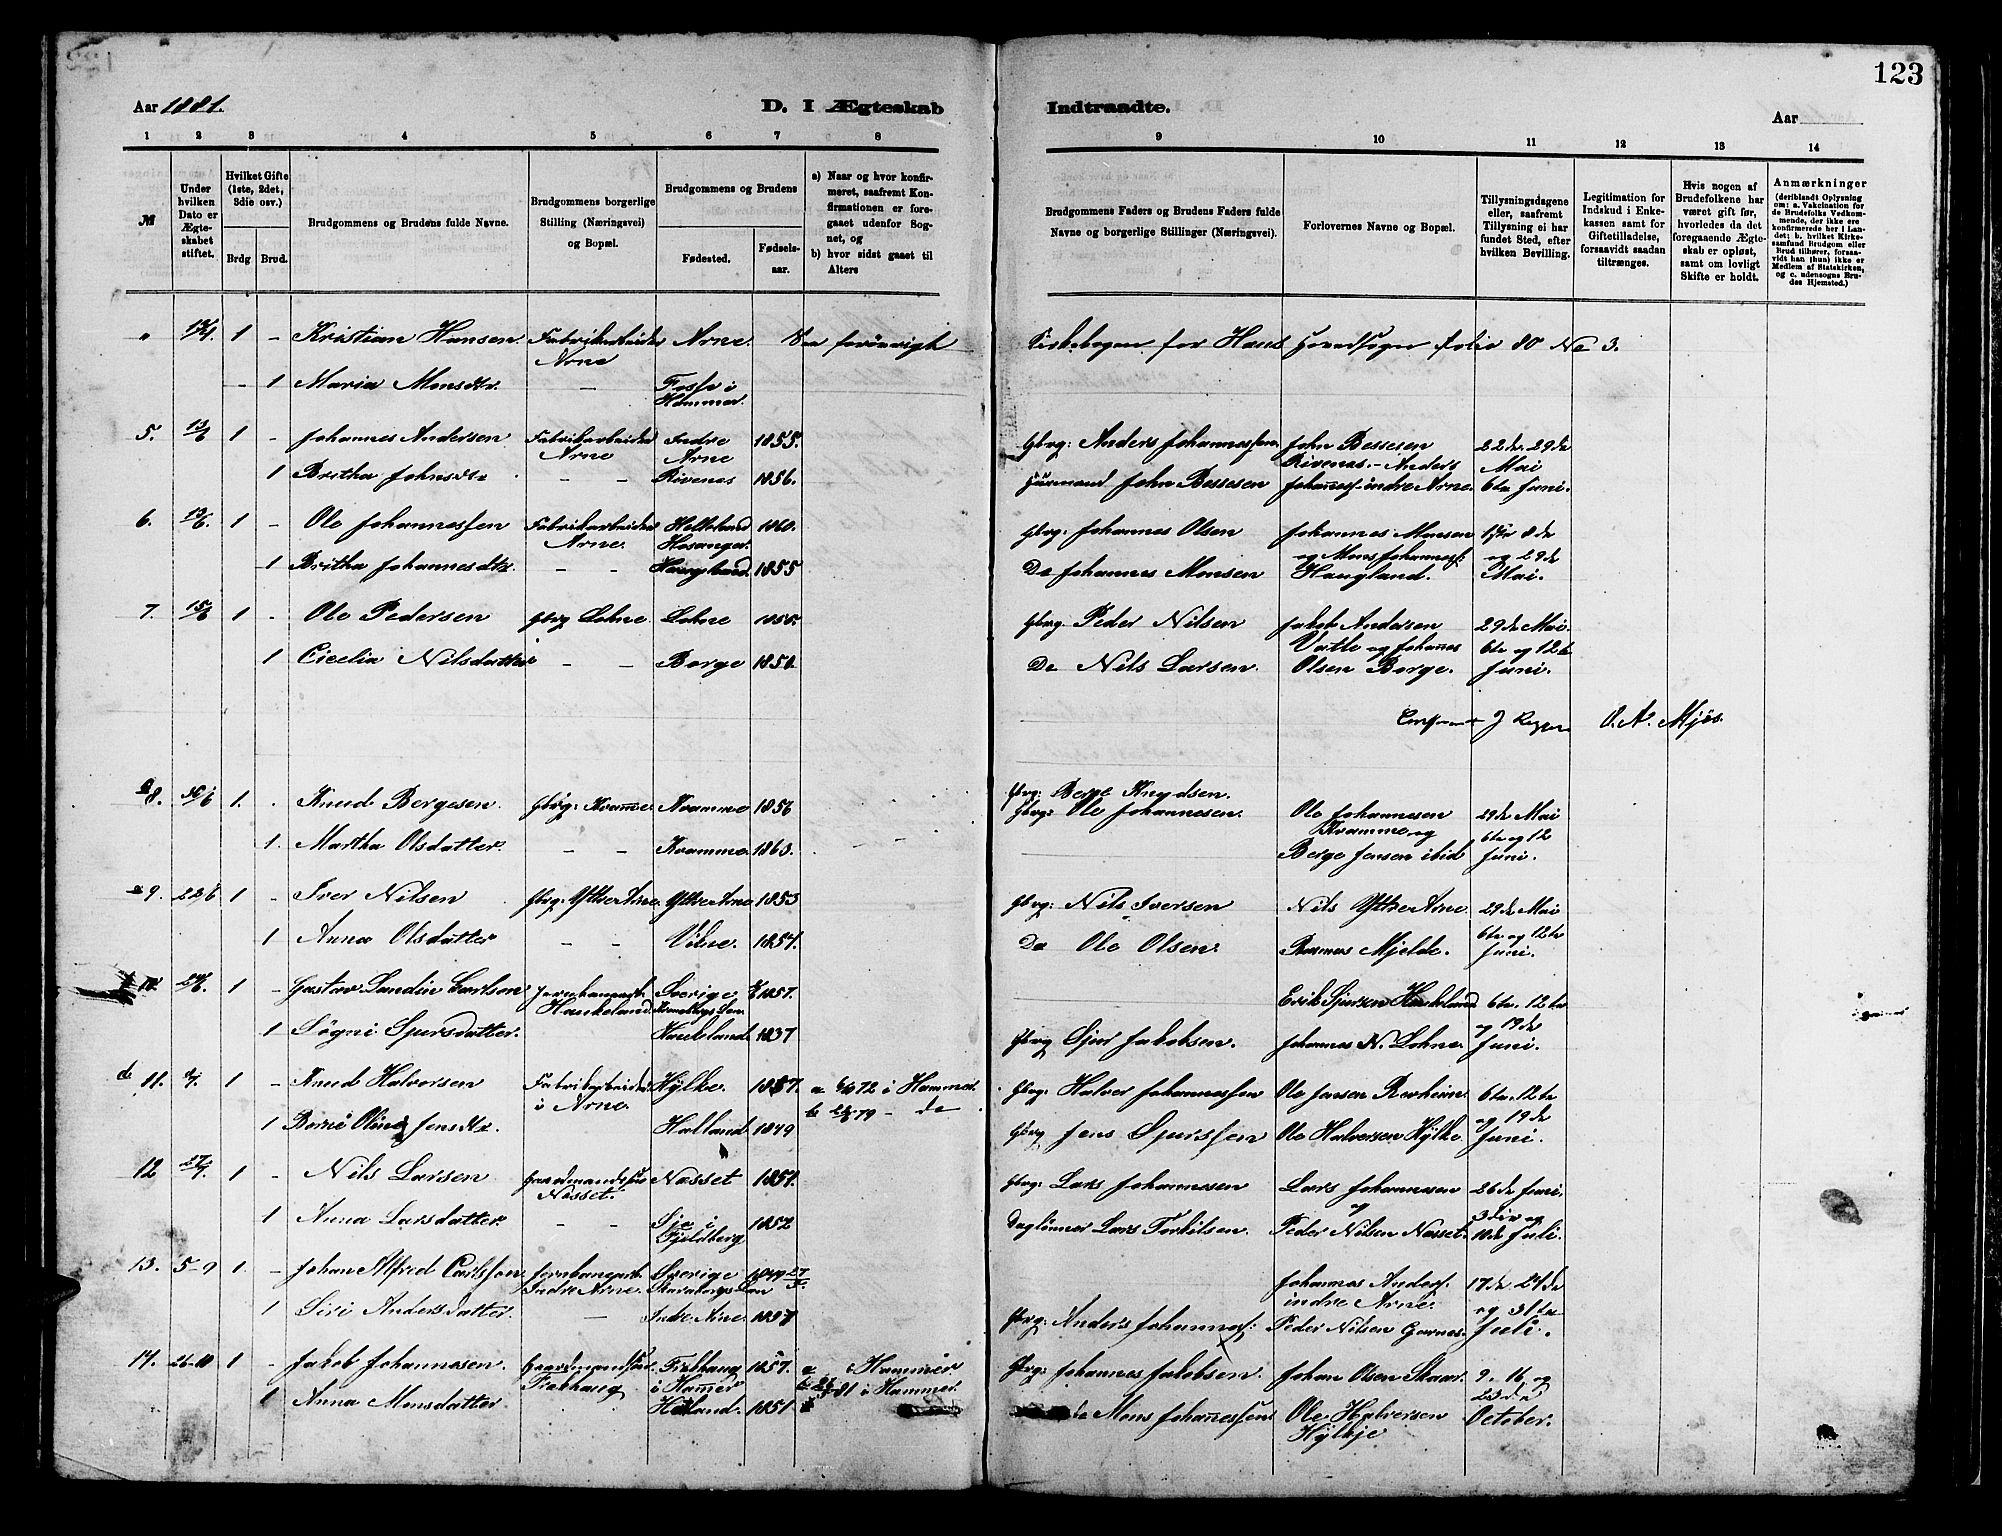 123
Aar 1881.
D. I Ægteskab
Indtraadte.
Aar
1 2 3 4 5 6 7 8
9 10 11 12 13 14
№
Under hvilken Dato er Ægteskabet stiftet.
Hvilket Gifte (1ste, 2det, 3die osv.)
Brdg Brud.
Brudgommens og Brudens fulde Navne.
Brudgommens borgerlige Stilling (Næringsvei) og Bopæl.
Brudgommens og Brudens
Fødested.
Fødselsaar.
a) Naar og hvor konfirmeret, saafremt Konfirmationen er foregaaet udenfor Sognet, og
b) hvor sidst gaaet til Alters
Brudgommens Faders og Brudens Faders fulde Navne og borgerlige Stillinger (Næringsvei).
Forlovernes Navne og Bopæl.
Tillysningsdagene eller, saafremt Tillysning ei har fundet Sted, efter hvilken Bevilling.
Legitimation for Indskud i Enkekassen samt for Giftetilladelse, forsaavidt saadan tiltrænges.
Hvis nogen af Brudefolkene har været gift før, hvorledes da det foregaaende Ægteskab er opløst, samt om lovligt Skifte er holdt.
Anmærkninger (deriblandt Oplysning om: a. Vakcination for de Brudefolks Vedkommende, der ikke ere konfirmerede her i Landet; b. hvilket Kirkesamfund Brudgom eller Brud tilhører, forsaavidt han (hun) ikke er Medlem af Statskirken, og c. udensogns Brudes Hjemsted.)
" 1 - Kristian Hansen Fabrikarbeider Arne. forøvrigt Kirkebogen for Haus Hovedsogn folio 80 No 3.
Arne
- 1 Maria Monsdtr. - Fosse i
Hammer.
5. 13/6 1 - Johannes Andersen Fabrikarbeider Indre 1855. Gbrg: Anders Johannessen. John Bessesen 22de. 29de
Arne Arne Rivenes.- Anders Mai
1 Britha Johnsdtr - - Rivenes 1856. Huusmand John Bessesen Johaness. indre Arne. 6te Juni.
6. 13/6. 1 - Ole Johannessen Fabrikarbeider Helleland 1860. Gbrg: Johannes Olsen Johannes Monsen 8de
Arne. Hosanger. og Mons Johanness: og 29de
1 Britha Johannesdtr. - - Haugland. 1855 Do Johannes Monsen Haugland. Mai.
7. 15/6 1 - Ole Pedersen Gbrg Lohne. Lohne Gbrg. Peder Nilsen Jakob Andersen 29de Mai.
Vatle og Johanes 6te og 12te
1 Cicelia Nilsdatter - - Borge Do Nils Larsen. Olsen Borge. Juni.
O. A. Mjøs.
8. 1. . Knud Bergesen Gbrg: Kvamme. Kvamme 1856 Gbrg: Berge Knudsen.
Gbrg: Ole Johannesen. Ole Johannesen 29de Mai
Kvamme og 6te og 12
1. Martha Olsdatter. - - Kvamme. 1863. Berge Jensen ibid Juni.
9. 22/6 1 - Iver Nilsen Gbrg: Yttre Arne. Yttre Arne 1853 Gbrg: Nils Iversen Nils Yttre Arne. 29de Mai
6te og 12te
1 Anna Olsdatter - - 1854. Do Ole Olsen. Rasmus Mjelde. Juni.
10. 24/6. 1 - Gustav Sundin Carlson Sverige 1857. Erik Sjursen Haukeland 6te. 12te
Haukeland. Kronobergs Len.
og 19de
1 Søgni Sjursdatter. Haukeland. 1837 Gbrg Sjur Jakobsen. Johannes N. Lohne. Juni.
11. 1 - Knud Halvorsen Fabrikarbeider Hylke. 1857. a 72 i Hammer. Gbrg: Halvor Johannessen Ole Jensen 6te. 12te
i Arne. b 79 - do og 19de
1 Jensdtr. Halland. 1849 Gbrg Jens Sjurssen Ole Halvorsen Hylke Juni.
12 27/7. 1 - Nils Larsen Gaardmandssøn Nasset 1857. Gbrg: Lars Johannesen Lars Johannesen 26de Juni.
Nasset. og 3die og
1 Anna Larsdatter - - i 1852 Daglønner Lars Torkilsen. Peder Nilsen Nasset. 10de Juli.
Fjeldberg
13. 5-9 1. - Johan Alfred Carlsson Jernbanearb. Sverige 1849 Johannes Anders: 17de 24de
Indre Arne. Skaraborgs Len indre Arne. og 31te
1 Siri Andersdatter. - Indre Arne. 1837 Gbrg: Anders Johanness: Peder Nilsen Garnes. Juli.
14. 26-10 1 - Jakob Johannesen. Gaardmandssøn 1857. a Hammer Gbrg: Johannes Jakobsen. Johan Olsen Skaar. 9. 16 og
i Hamer b 81 i Hammer. 23de
1 Anna Monsdatter 1851. do Mons Johanessen Ole Halversen October.
Hylkje